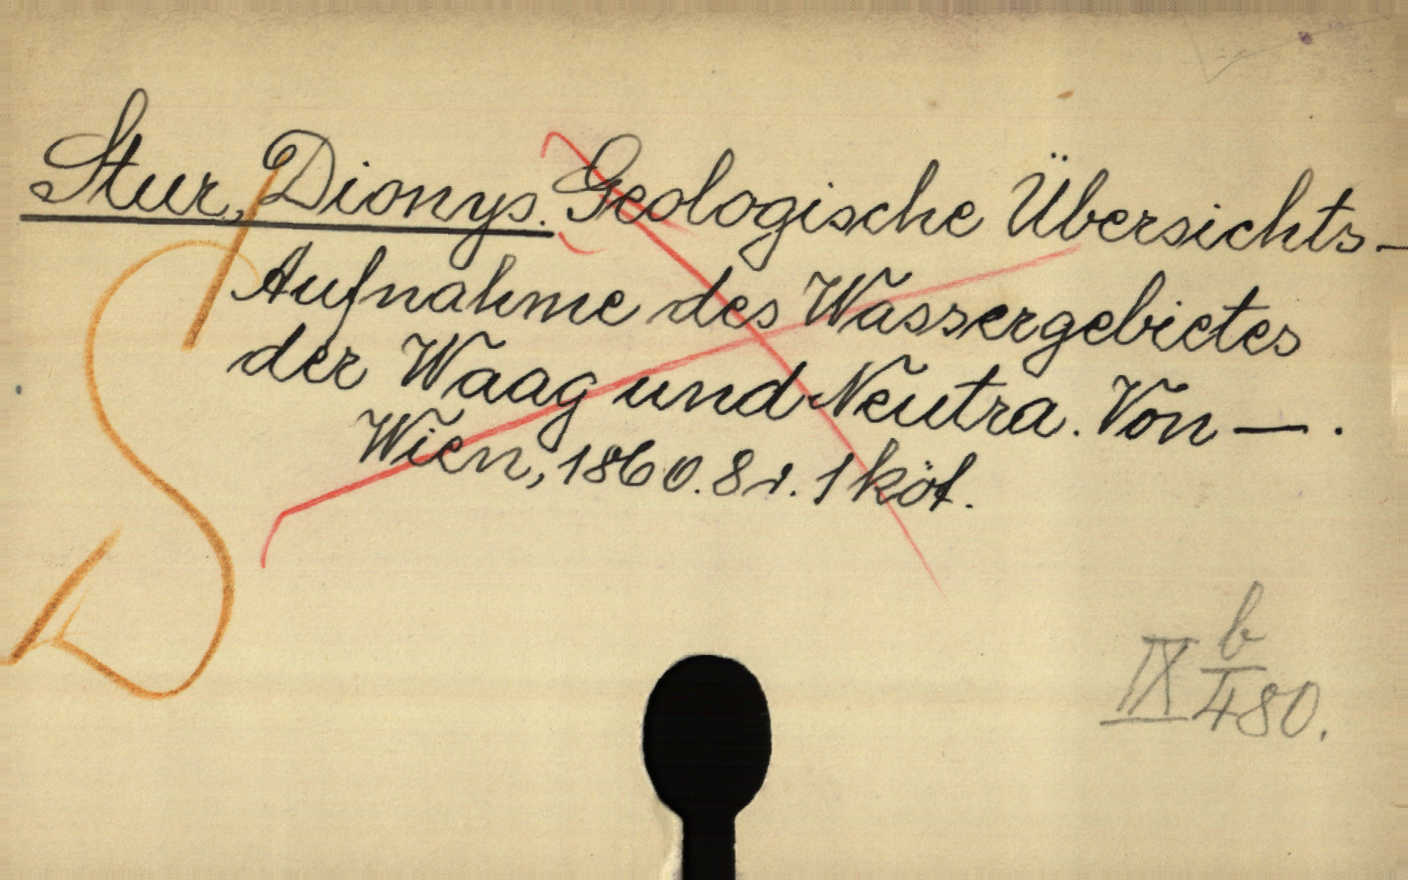 Stur, Dionys. Geologische Übersichts-
Aufnahme des Wassergebietes
der Waag und Neutra. Von —.
Wien, 1860. 8r. 1 köt.
IX b/480.
S